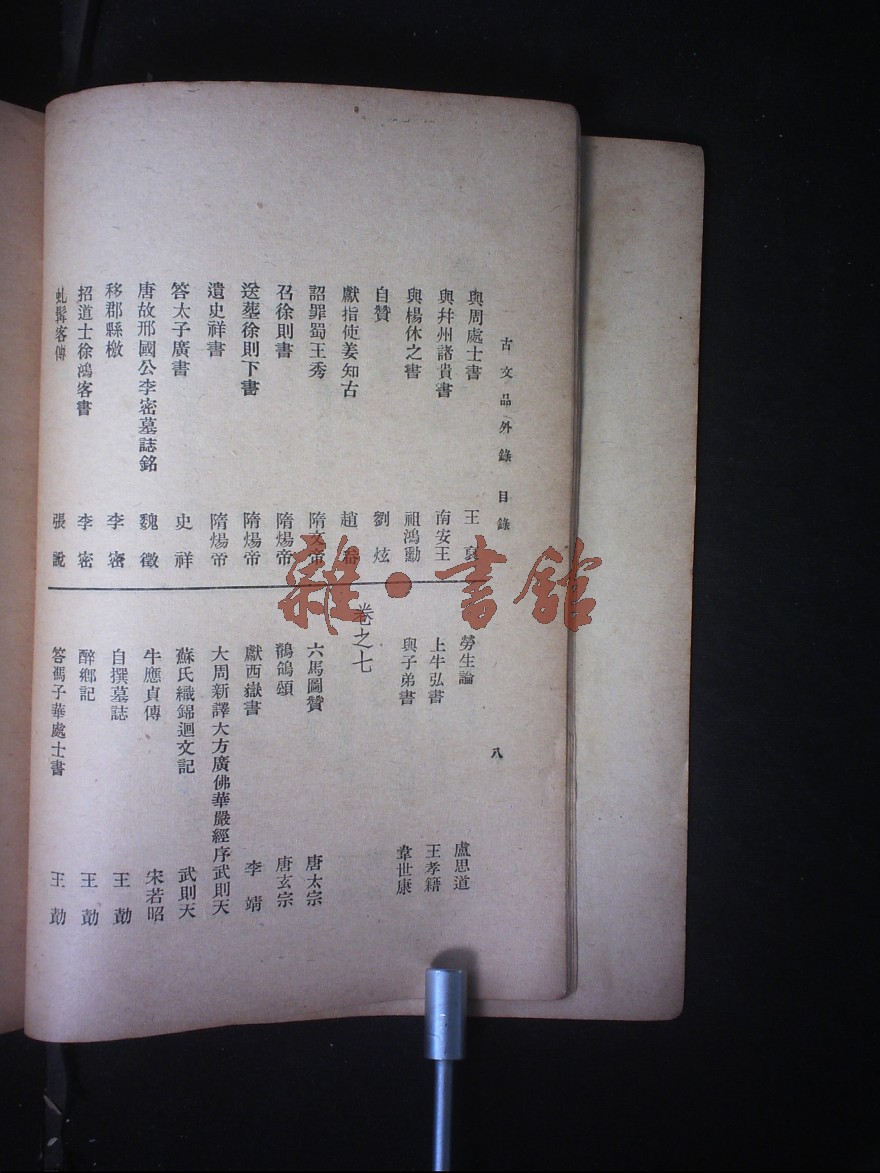 古文品外錄 目錄
八
與周處士書 王襃
與幷州諸貴書 南安王
與楊休之書 祖鴻勳
自贊 劉炫
獻指使姜知古 趙
詔罪蜀王秀 隋文帝
召徐則書 隋煬帝
送葬徐則下書 隋煬帝
遺史祥書 隋煬帝
答太子廣書 史祥
唐故邢國公李密墓誌銘 魏徵
移郡縣檄 李密
招道士徐鴻客書 李密
虬髯客傳 張說
勞生論 盧思道
上牛弘書 王孝籍
與子弟書 韋世康
卷之七
六馬圖贊 唐太宗
鶺鴒頌 唐玄宗
獻西嶽書 李靖
大周新譯大方廣佛華嚴經序 武則天
蘇氏織錦迴文記 武則天
牛應貞傳 宋若昭
自撰墓誌 王勣
醉鄉記 王勣
答馮子華處士書 王勣
雜·書館